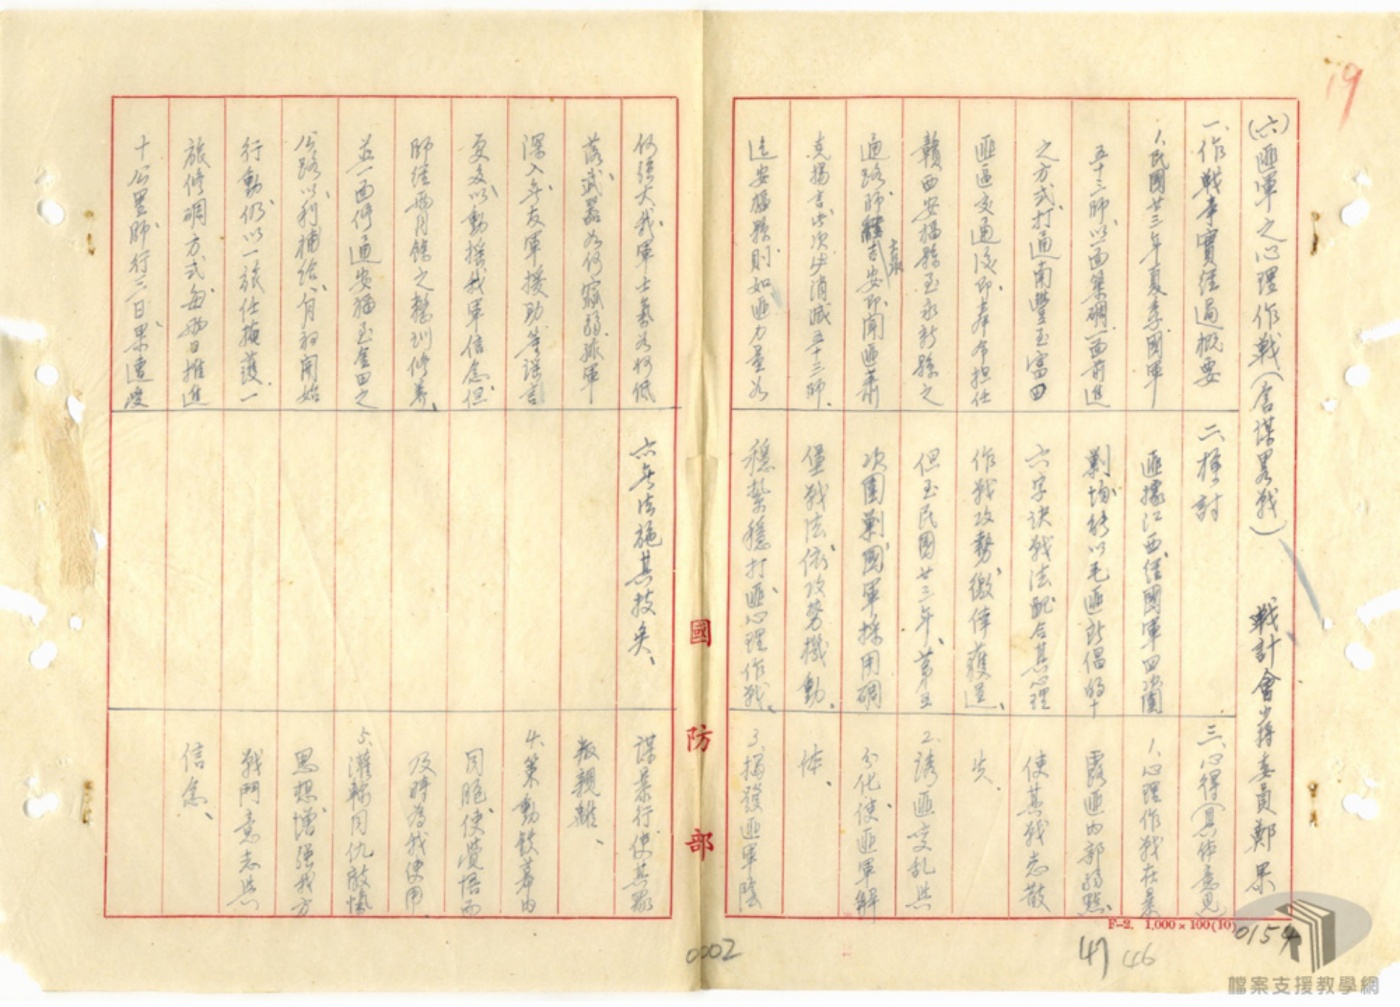 19
(六)匪軍之心理作戰(含謀畧戰) 戰計會少將委員鄭果
一、作戰事實經過概要
1、民國廿三年夏季國軍
五十三師以一面築碉一面前進
之方式打通南豐至富田
匪區交通後即奉命担任
贛西安福縣至永新縣之
通路師經吉安即聞匪蕭
克揚言此次必消滅五十三師、
迄安福縣則如匪力量如
何強大我軍士氣如何低
落、武器如何窳弱孤軍
深入無友軍援助等謠言
更多以動搖我軍信念但
師經兩月餘之整訓修養、
並一面修通安福至金田之
公路以利補給、月初開始
行動仍以一旅任掩護、一
旅修碉方式每日推進
十公里師行三日果遭
二、檢討
匪據江西經國軍四次圍
剿均能以毛匪所倡的十
六字訣戰法配合其心理
作戰攻勢僥倖獲逞、
但至民國廿三年、第五
次圍剿國軍採用碉
堡戰法依攻勢機動、
穩紮穩打匪心理作戰、
六無法施其技矣、
三、心得(具体意見)
1、心理作戰在暴
露匪內部弱點
使其戰志散
失、
2、誘匪變乱與
分化使匪軍解
体、
3、揭發匪軍陰
謀暴行使其眾
叛親離、
4、策動鉄幕內
同胞使覺悟而
及時為我使用
5、灌輸同仇敵愾
思想增強我方
戰鬥意志與
信念、
國防部
F-2. 1,000×100(10)
0154
0002
47 46
檔案支援教學網